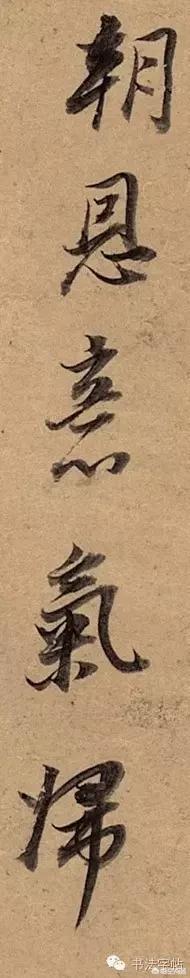 朝恩意氣歸
书法字帖